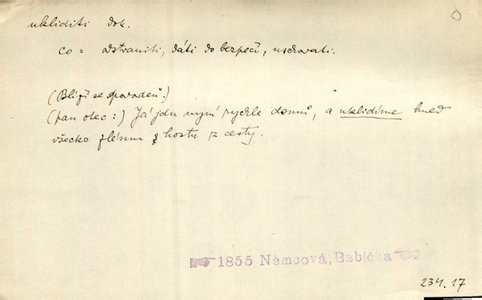 uklíditi dok.
co = odstraniti, dáti do bezpečí, uschovati.
(Blíží se povodeň.)
(pan otec:) Já jdu nyní rychle domů, a uklidíme hned
všecko z cesty.
1855 Němcová, Babička
234.17